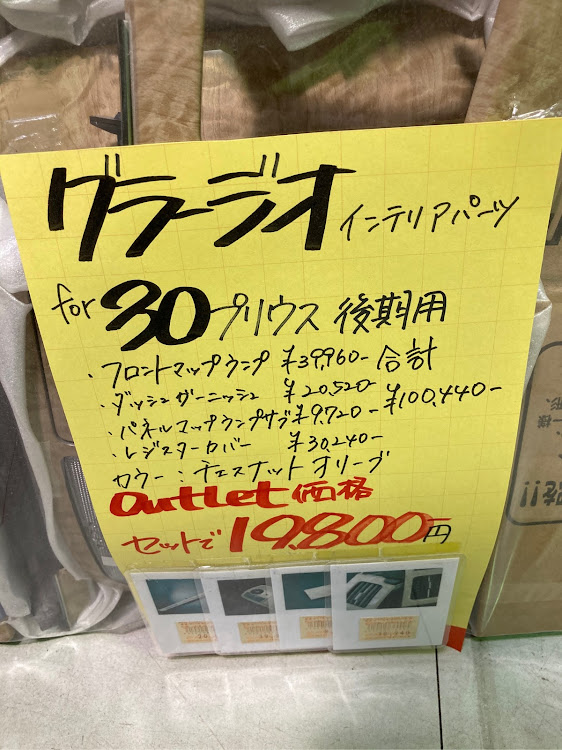 グラージオ インテリアパーツ
for 30プリウス 後期用
・フロントマップランプ ¥39,960- 合計
・ダッシュガーニッシュ ¥20,520- ¥100,440-
・パネルマップランプサブ ¥9,720-
・レジスターカバー ¥30,240-
カラー:チェスナットオリーブ
outlet 価格
セットで 19,800円